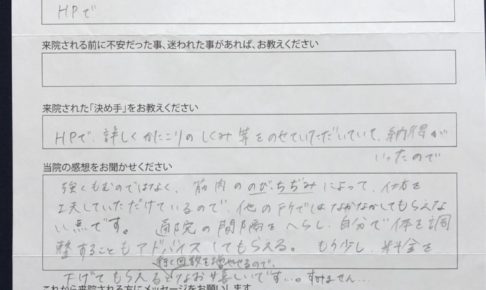 HPで
来院される前に不安だった事、迷われた事があれば、お教えください
来院された「決め手」をお教えください
HPで、詳しくかたこりのしくみ等をのせていただいていて、納得が
いったので
当院の感想をお聞かせください
強くもむのではなく、筋肉ののびちぢみによって、仕方を
工夫していただけているので、他の所ではなかなかしてもらえな
い点です。通院の間隔をへらし、自分で体を調
整することもアドバイスしてもらえる。もう少し、料金を
回数を増やせるので、
下げてもらえるとなお嬉しいです…。すみません…
これから来院される方にメッセージをお願いします